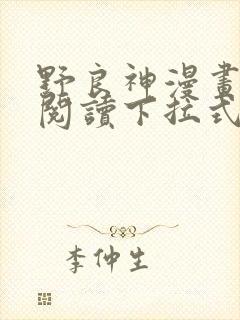 野良神漫畫
閱讀下拉式
李仲生